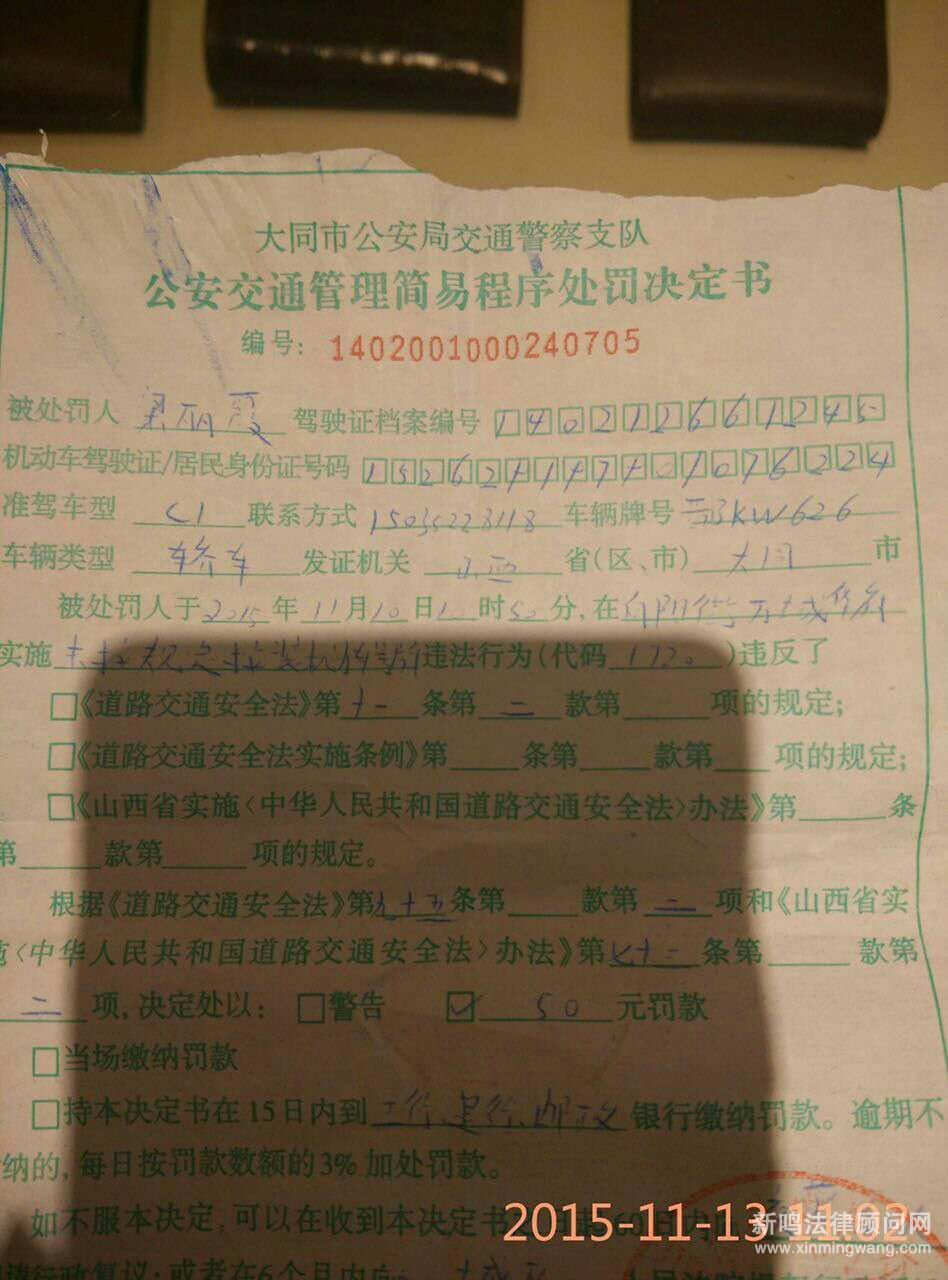 大同市公安局交通警察支队
公安交通管理简易程序处罚决定书
编号: 1402001000240705
被处罚人 驾驶证档案编号 140212661245
机动车驾驶证/居民身份证号码
准驾车型 C1 联系方式 15035223118 车辆牌号 晋BKW626
车辆类型 轿车 发证机关 山西 省(区、市) 大同 市
被处罚人于2015年11月10日10时50分,在
实施未按规定安装机动车号牌违法行为(代码 1120 )违反了
□《道路交通安全法》第十一条第二款第 项的规定;
□《道路交通安全法实施条例》第 条第 款第 项的规定;
□《山西省实施〈中华人民共和国道路交通安全法〉办法》第 条
第 款第 项的规定。
根据《道路交通安全法》第九十五条第 款第二项和《山西省实
施〈中华人民共和国道路交通安全法〉办法》第七十一条第 款第
二项,决定处以: □警告 ☑ 50 元罚款
□当场缴纳罚款
□持本决定书在15日内到工行、建行、邮政银行缴纳罚款。逾期不
缴纳的,每日按罚款数额的3%加处罚款。
如不服本决定,可以在收到本决定书
2015-11-13 11:02
新鸣法律顾问网
www.xinmingwang.com